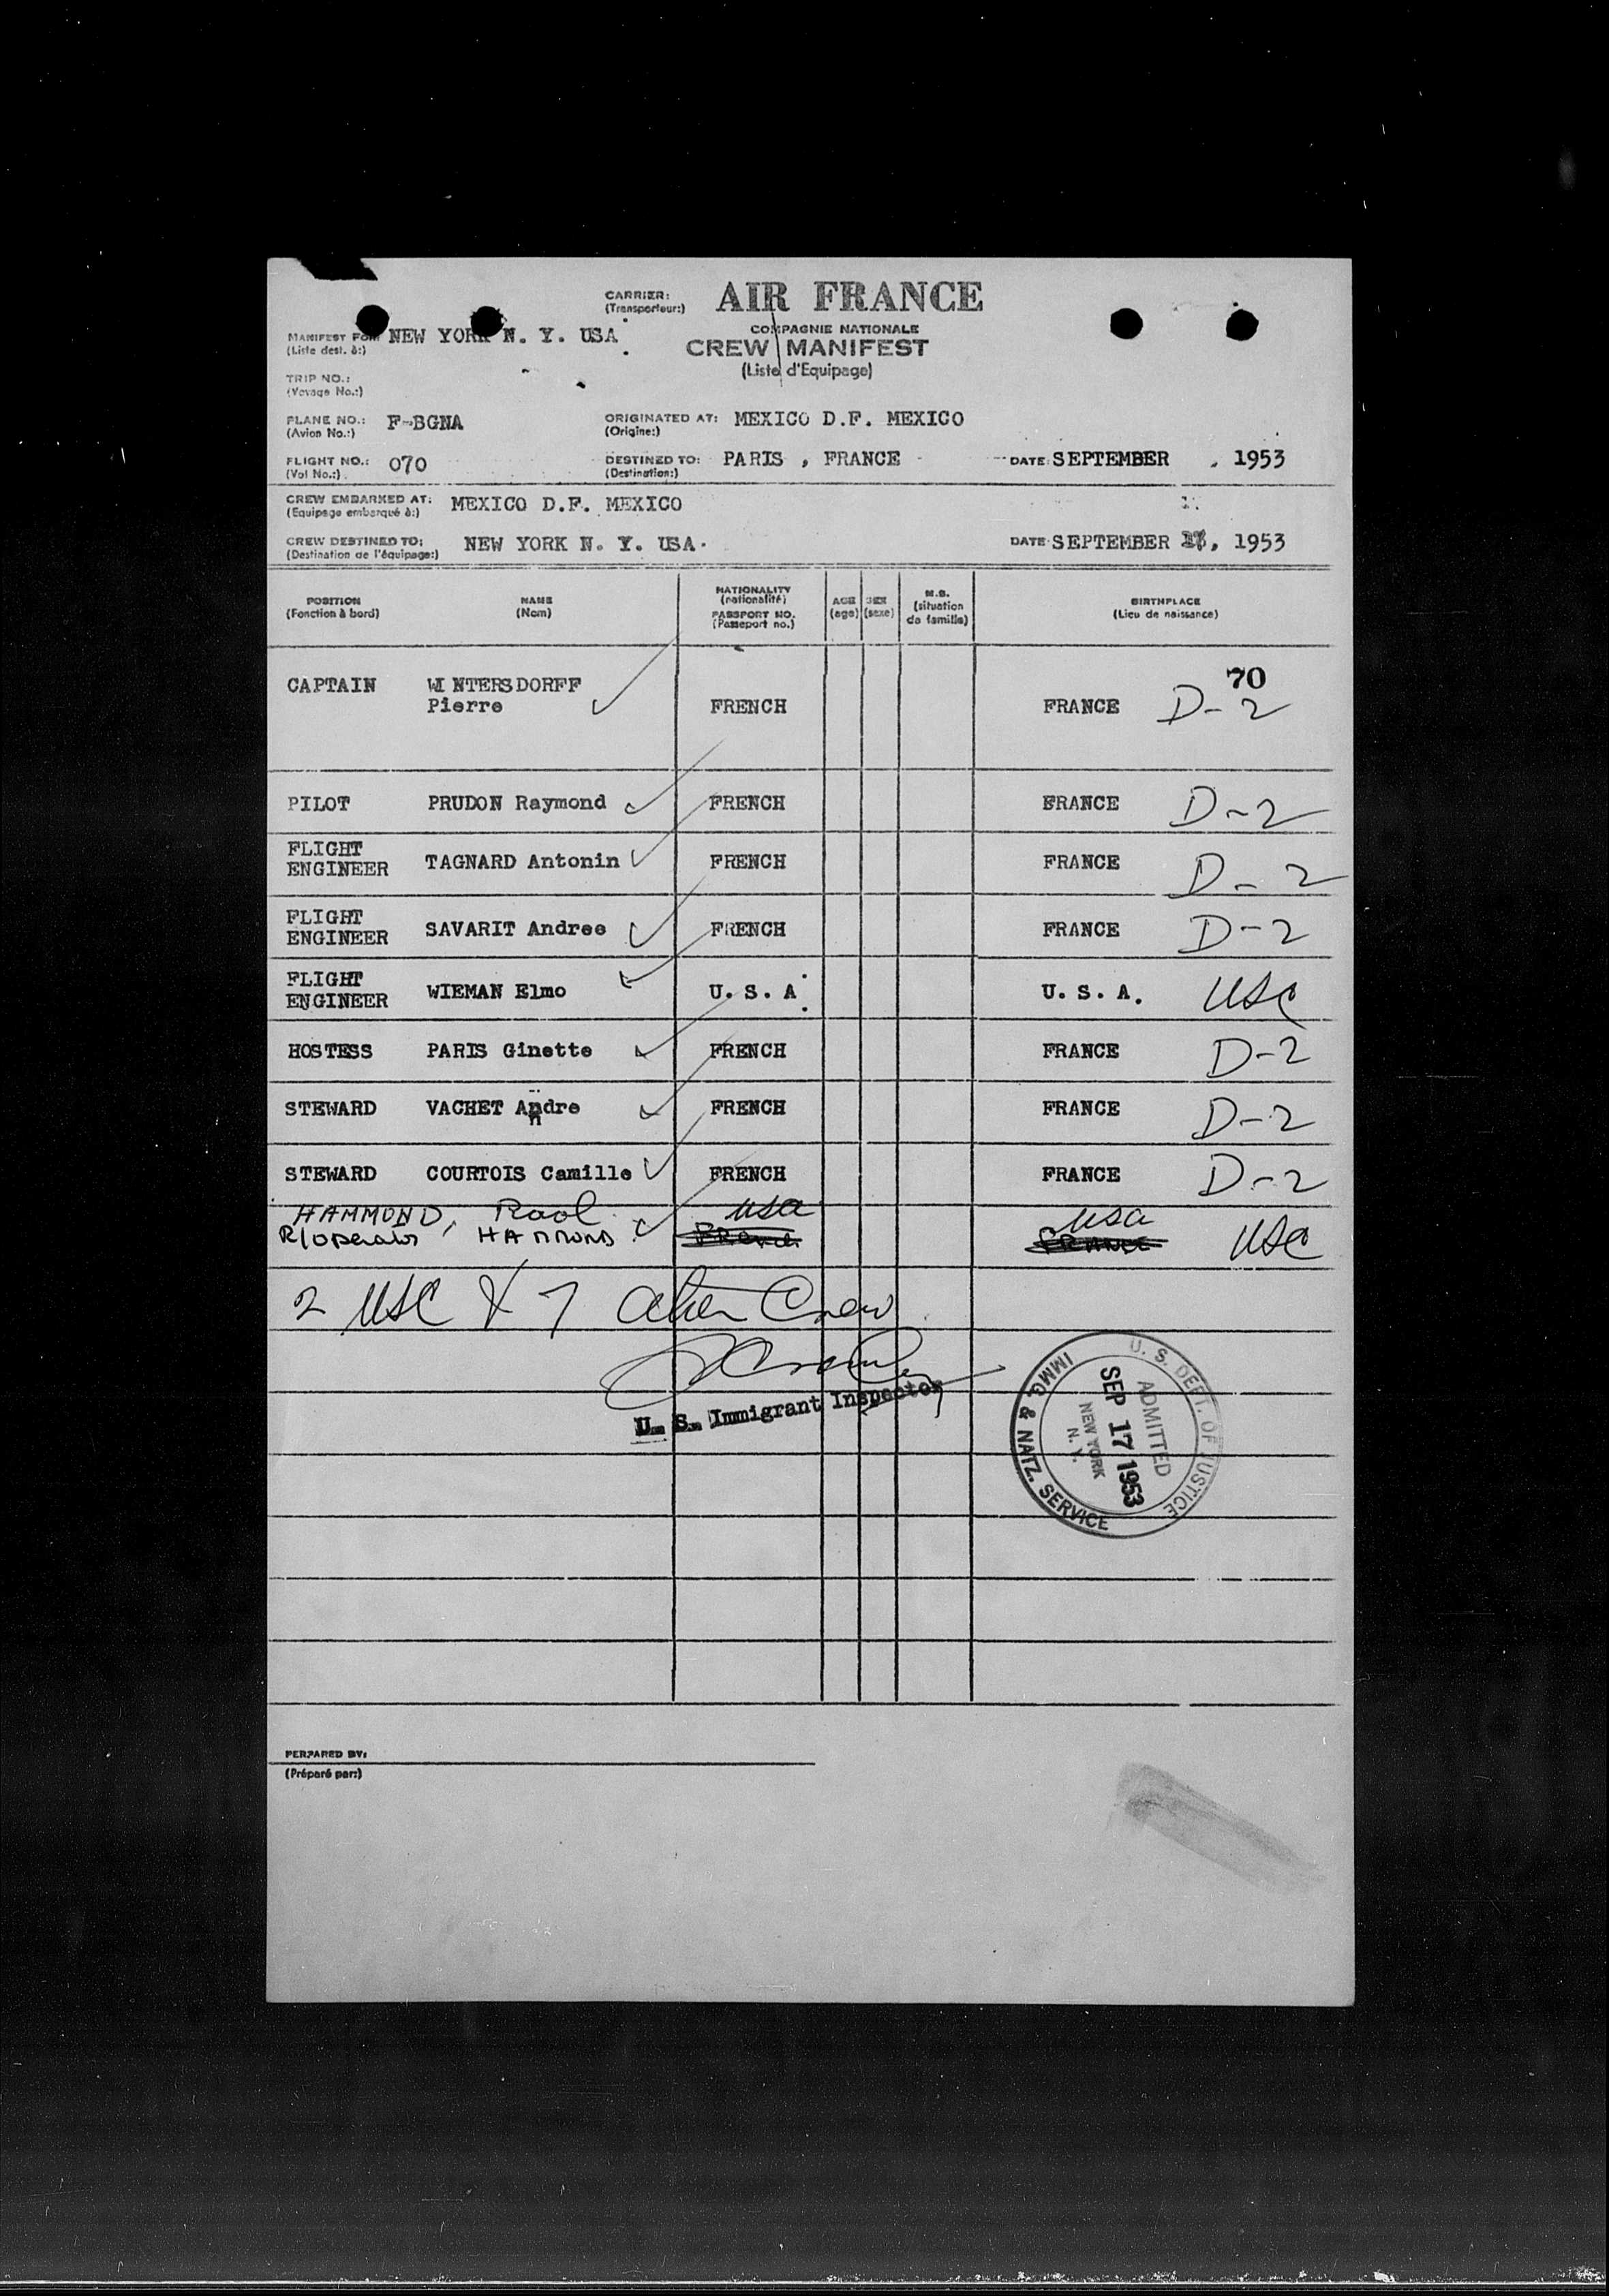 CARRIER: AIR FRANCE
(Transporteur:)
COMPAGNIE NATIONALE
MANIFEST FOR NEW YORK N. Y. USA
(Liste dest. à:)
CREW MANIFEST
(Liste d'Equipage)
TRIP NO.:
(Voyage No.:)
PLANE NO.: F-BGNA ORIGINATED AT: MEXICO D.F. MEXICO
(Avion No.:) (Origine:)
FLIGHT NO.: 070 DESTINED TO: PARIS , FRANCE DATE: SEPTEMBER , 1953
(Vol No.:) (Destination:)
CREW EMBARKED AT: MEXICO D.F. MEXICO
(Equipage embarqué à:)
CREW DESTINED TO: NEW YORK N. Y. USA. DATE: SEPTEMBER , 1953
(Destination de l'équipage:)
POSITION NAME NATIONALITY AGE SEX M.S. BIRTHPLACE
(Fonction à bord) (Nom) (nationalité) (age) (sexe) (situation de famille) (Lieu de naissance)
PASSPORT NO.
(Passeport no.)
70
CAPTAIN WINTERSDORFF
Pierre FRENCH FRANCE D-2
PILOT PRUDON Raymond FRENCH FRANCE D-2
FLIGHT
ENGINEER TAGNARD Antonin FRENCH FRANCE D-2
FLIGHT
ENGINEER SAVARIT Andree FRENCH FRANCE D-2
FLIGHT
ENGINEER WIEMAN Elmo U.S.A. U.S.A. USC
HOSTESS PARIS Ginette FRENCH FRANCE D-2
STEWARD VACHET Andre FRENCH FRANCE D-2
n
STEWARD COURTOIS Camille FRENCH FRANCE D-2
HAMMOND, Raol usa usa
R/operator HAMMOND French FRANCE USC
2 USC & 7 alien Crew
U. S. Immigrant Inspector
U. S. DEPT. OF JUSTICE
IMMG. & NATZ. SERVICE
ADMITTED
SEP 17 1953
NEW YORK
N. Y.
PERPARED BY:
(Préparé par:)